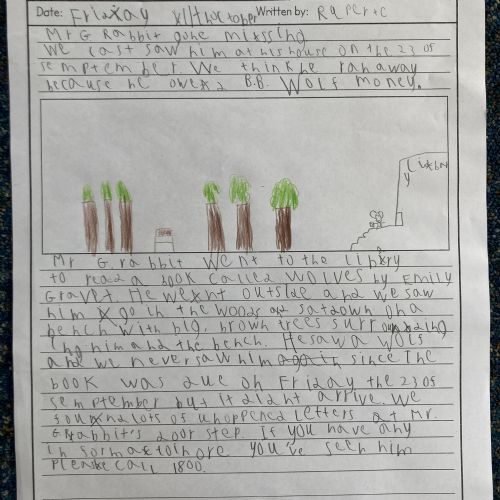 Date: Friday 11th october Written by: Rupert c
Mr G Rabbit gone mixssing
We last saw him at his house on the 23 of
semptember We think he ran away
because he owes B.B. Wolf money.
library
Mr G.rabbit went to the library
to read a book called Wolves by Emily
Gravet. He wexnt outside and we saw
him go in the woods and sat down on a
bench with big, brown trees surrounding
ing him and the bench. He saw a Wolf
and we never saw him again since. The
book was due on Friday the 23 of
semptember but it didnt arrive. We
found lots of unoppened letters at Mr.
G Rabbit's door step. If you have any
in formaktoin ore you've seen him
Please call 1800.